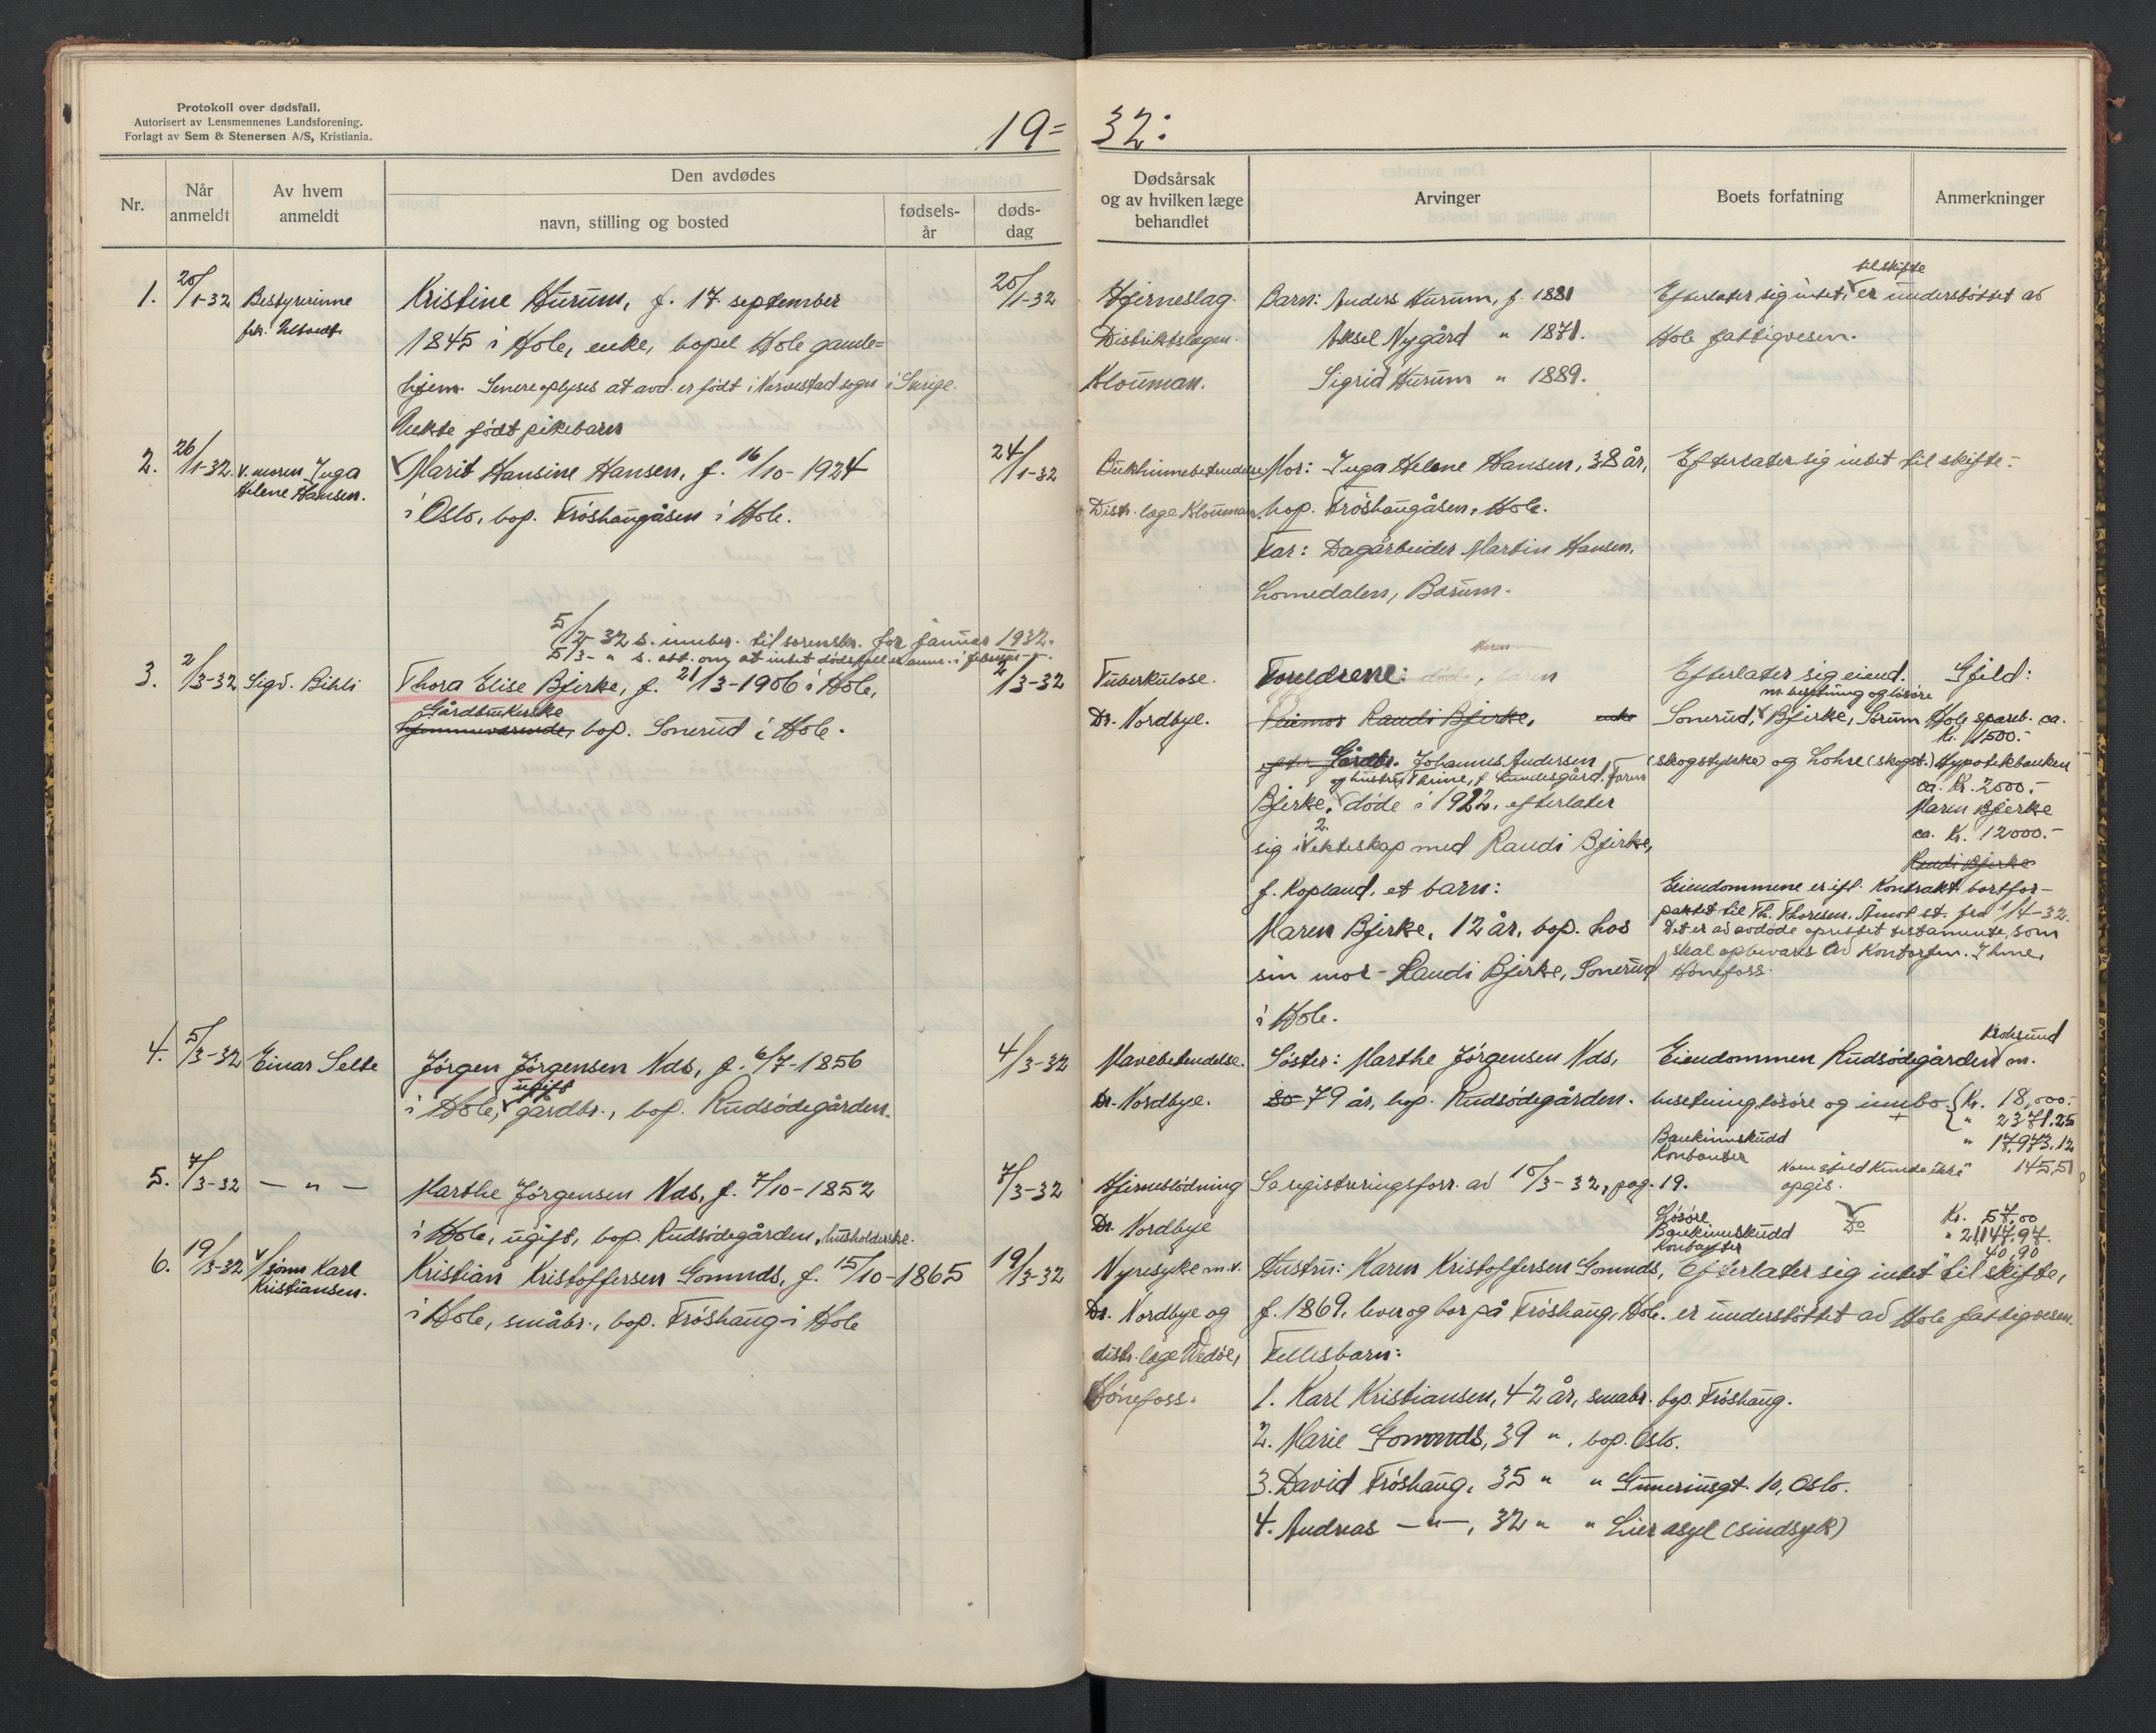 Protokoll over dødsfall.
Autorisert av Lensmennenes Landsforening.
Forlagt av Sem & Stenersen A/S, Kristiania.
19= 32:
Nr.
Når anmeldt
Av hvem anmeldt
Den avdødes
navn, stilling og bosted
fødsels-år
døds-dag
Dødsårsak og av hvilken læge behandlet
Arvinger
Boets forfatning
Anmerkninger
1. 20/1-32 Bestyrerinne frk.
Kristine Hurum, f. 17. september
1845 i Hole, enke, bopel Hole gamle=
hjem. Senere oplyses at avd. er født i sogn i Sverige.
20/1-32
Hjerneslag.
Distriktslegen
Klouman.
Barn: Anders Hurum, f. 1881
Aksel Nygård " 1871.
Sigrid Hurum " 1889.
Efterlater sig intet til skifte, er understøttet av
Hole fattigvesen.
2. 26/1-32. v. moren Inga
Helene Hansen.
Uekte født pikebarn
Marit Hansine Hansen, f. 16/10-1924
i Oslo, bop. Frøshaugåsen i Hole.
24/1-32
Bukhinnebetendelse
Distr. læge Klouman.
Mor: Inga Helene Hansen, 38 år,
bop. Frøshaugåsen, Hole.
Far: Dagarbeider Martin Hansen,
Lomedalen, Bærum.
Efterlater sig intet til skifte.-
5/2-32 s. innber. til sorenskr. for januar 1932.
5/3- " s. att. om at intet dødsfall er anm. i februar
3. 2/3-32 Sigv. Bihli
Thora Elise Bjerke, f. 21/3-1906 i Hole,
Gårdbrukerske
hjemmeværende, bop. Sonerud i Hole.
2/3-32
Tuberkulose.
Dr. Nordbye.
Foreldrene:
Randi Bjerke, enke
efter Gårdbr. Johannes Andersen
og hustru Thrine, f. Faren
Bjerke, døde i 1922, efterlater
sig i 2. ekteskap med Randi Bjerke,
f. Kopland, et barn:
Maren Bjerke, 12 år, bop. hos
sin mor - Randi Bjerke, Sonerud
i Hole.
Efterlater sig eiend.
m. besetning og løsøre
Sonerud, Bjerke, Sørum
(skogstykke) og Lohre (skogst.)
Eiendommene er ifl. Kontrakt bortfor-
paktet til Th. Thoresen, Åmot st. fra 1/4-32.
Det er av avdøde oprettet testamente, som
skal opbevares av Kontorfm. Ihme,
Hønefoss.
Gjeld:
Hole spareb. ca.
Kr. 1500.-
Hypotekbanken
ca. Kr. 2000.-
Maren Bjerke
ca. Kr. 12000.-
Randi Bjerke
4. 5/3-32 Einar Selte
Jørgen Jørgensen Nds, f. 6/7-1856
i Hole, ugift gårdbr., bop. Rudsødegården.
4/3-32
Mavebetendelse.
Dr. Nordbye.
Søster: Marthe Jørgensen Nds,
80 79 år, bop. Rudsødegården.
Eiendommen Rudsødegården m.
Kroksund
besetning, løsøre og innbo
Bankinnskudd
Kontanter
Kr. 18,000.-
" 2371.25
" 17,973.12
145,51
5. 7/3-32 — " —
Marthe Jørgensen Nds, f. 7/10-1852
i Hole, ugift, bop. Rudsødegården, husholderske.
7/3-32
Hjerneblødning
Dr. Nordbye
Se registreringsforr. av 15/3-32, pag. 19.
Noen gjeld kunde ikke
opgis.
Løsøre
Bankinnskudd
Kontanter
Do
Kr. 57,00
" 21,147,97.
" 40,90
6. 19/3-32 v/ sønn Karl
Kristiansen.
Kristian Kristoffersen Gomnds, f. 15/10-1865
i Hole, småbr., bop. Frøshaug i Hole
19/3-32
Nyresyke m.v.
Dr. Nordbye og
distr. læge Wedøe,
Hønefoss.
Hustru: Karen Kristoffersen Gomnds,
f. 1869, lever og bor på Frøshaug, Hole.
Fellesbarn:
1. Karl Kristiansen, 42 år, småbr. bop. Frøshaug.
2. Marie Gomnds, 39 ", bop. Oslo.
3. David Frøshaug, 35 " " Guneriusgt. 10, Oslo.
4. Andreas — " —, 32 " " Lier asyl (sindsyk)
Efterlater sig intet til skifte,
er understøttet av Hole fattigvesen.